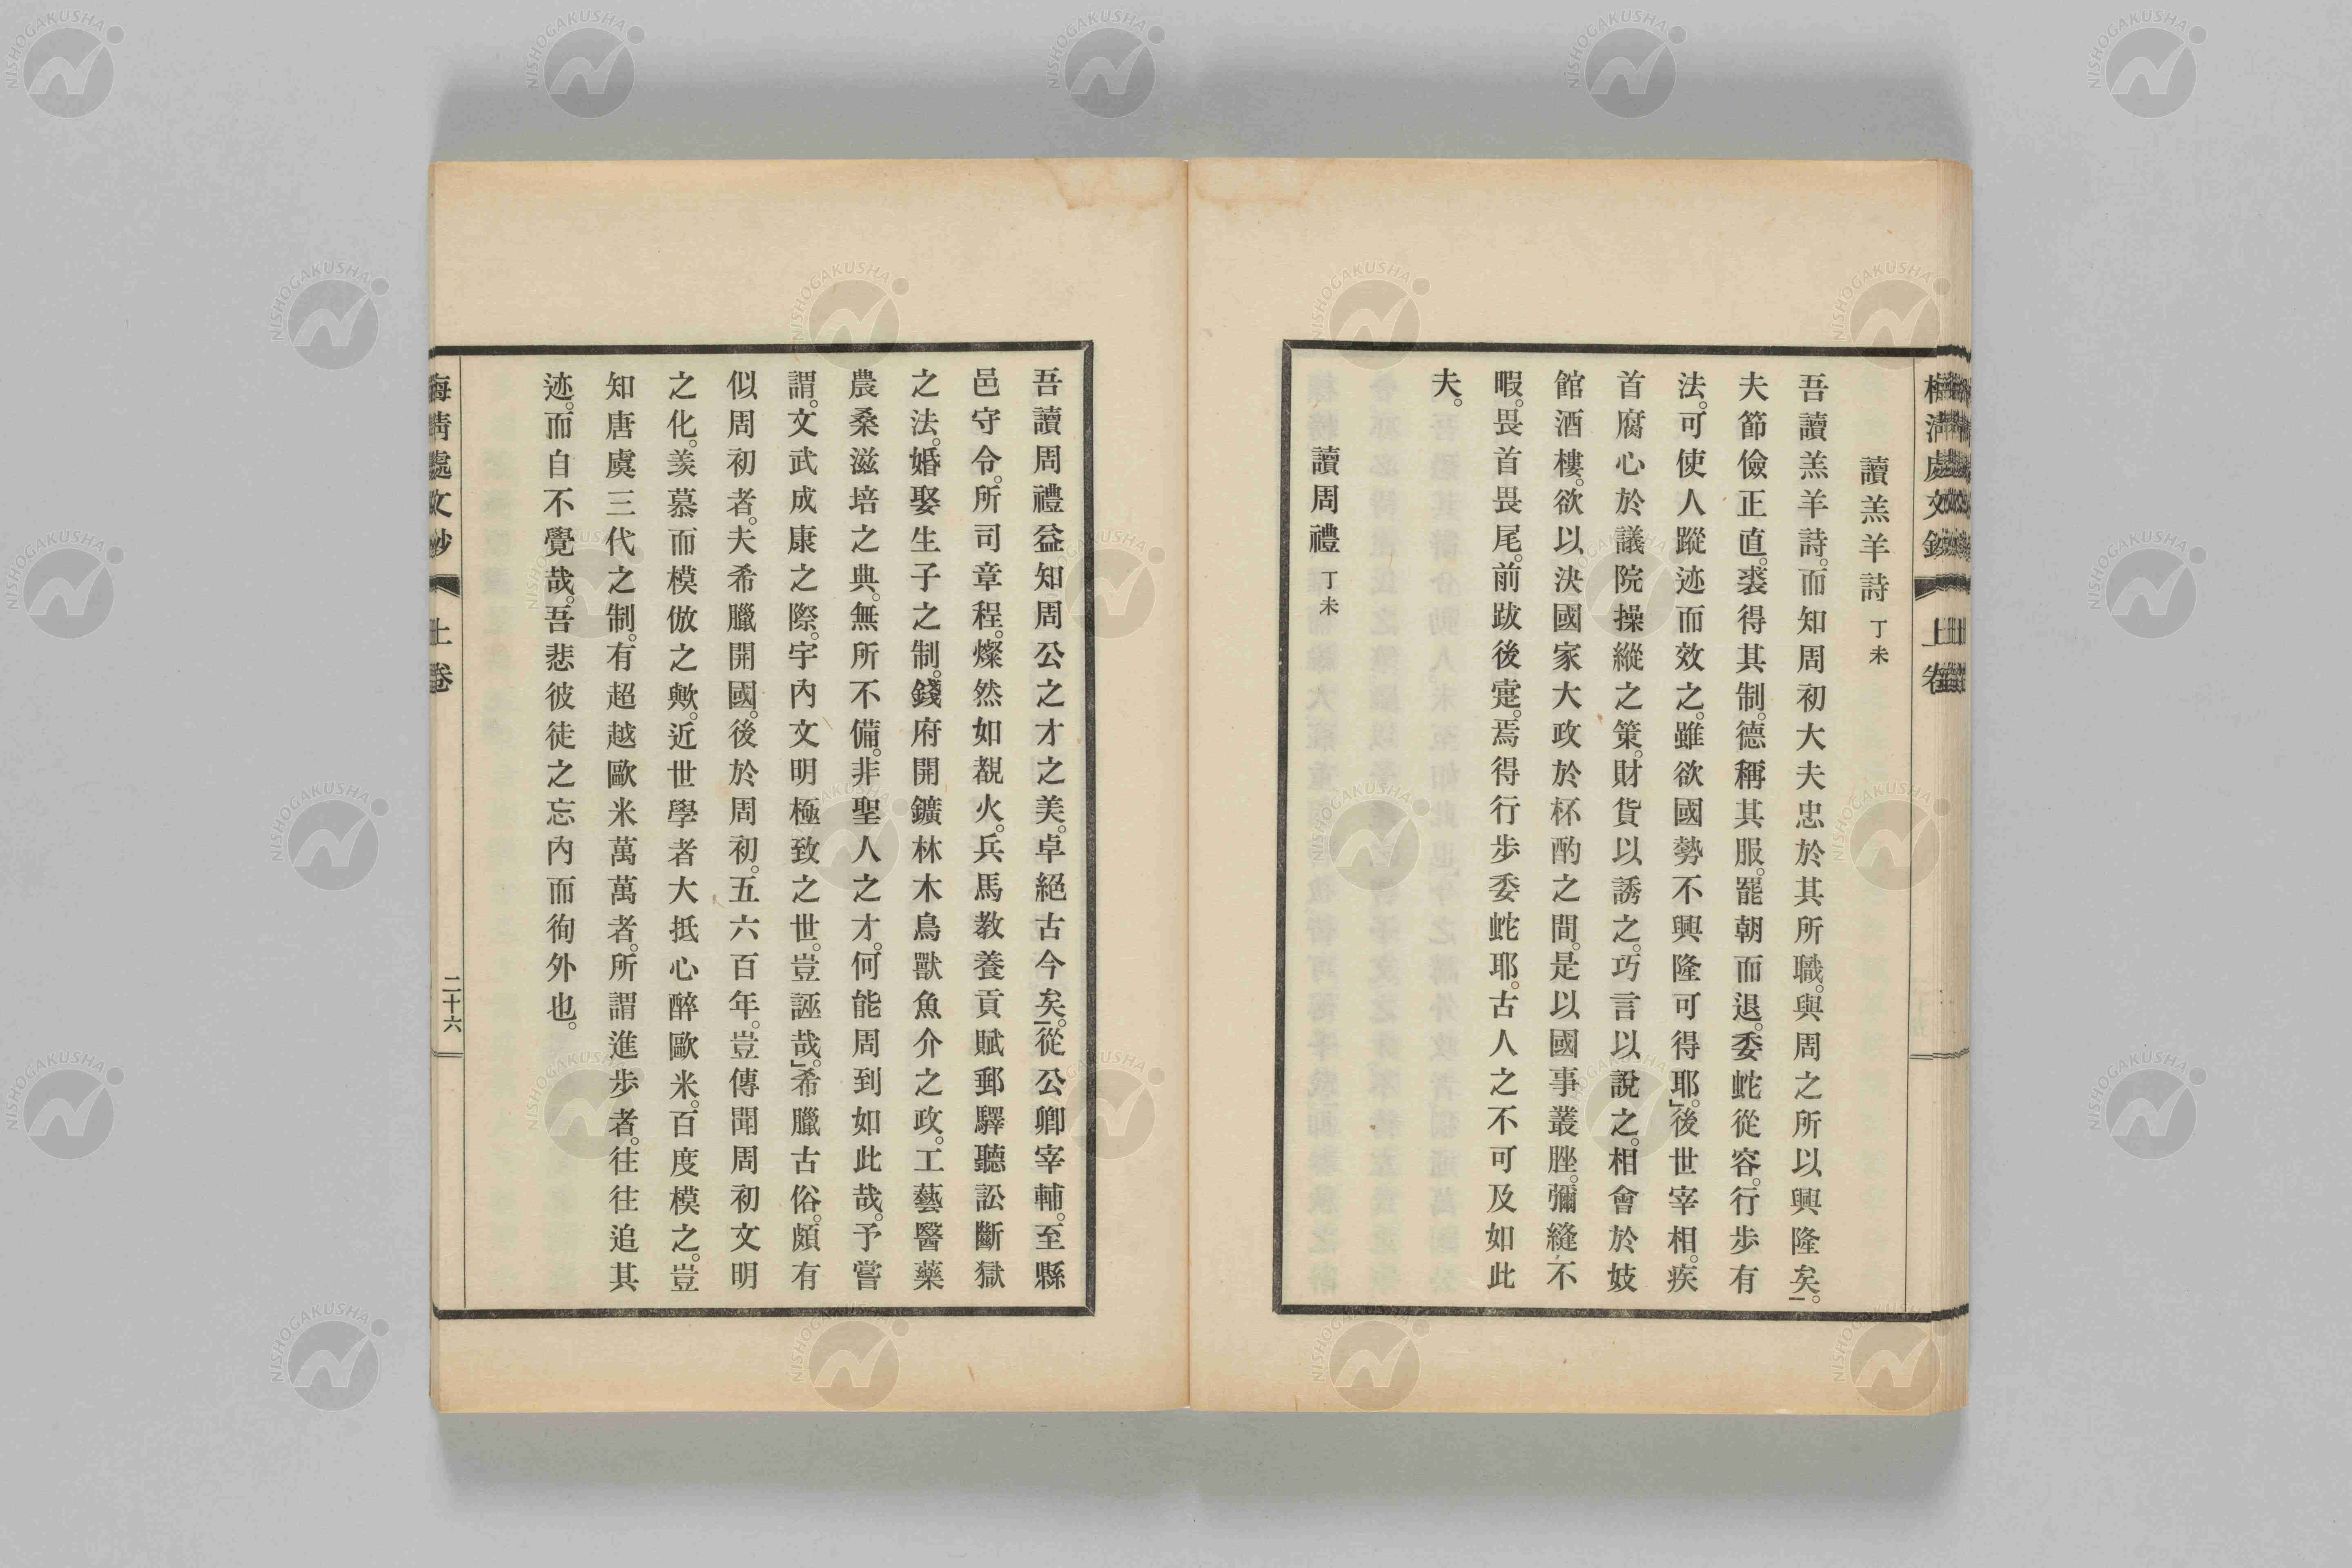 讀羔羊詩 丁未
吾讀羔羊詩。而知周初大夫忠於其所職。與周之所以興隆矣。
夫節儉正直。裘得其制。德稱其服。罷朝而退。委蛇從容。行步有
法。可使人蹤迹而效之。雖欲國勢不興隆可得耶。」後世宰相。疾
首腐心於議院操縱之策。財貨以誘之。巧言以說之。相會於妓
館酒樓。欲以決國家大政於杯酌之間。是以國事叢脞。彌縫不
暇。畏首畏尾。前跋後疐。焉得行步委蛇耶。古人之不可及如此
夫。
讀周禮 丁未
吾讀周禮益知周公之才之美。卓絕古今矣。從公卿宰輔。至縣
邑守令。所司章程。燦然如覩火。兵馬教養貢賦郵驛聽訟斷獄
之法。婚娶生子之制。錢府開鑛林木鳥獸魚介之政。工藝醫藥
農桑滋培之典。無所不備。非聖人之才。何能周到如此哉。予嘗
謂。文武成康之際。宇內文明極致之世。豈誣哉。」希臘古俗。頗有
似周初者。夫希臘開國。後於周初。五六百年。豈傳聞周初文明
之化。羨慕而模倣之歟。近世學者大抵心醉歐米。百度模之。豈
知唐虞三代之制。有超越歐米萬萬者。所謂進步者。往往追其
迹。而自不覺哉。吾悲彼徒之忘內而徇外也。
梅清處文鈔 上卷 二十六